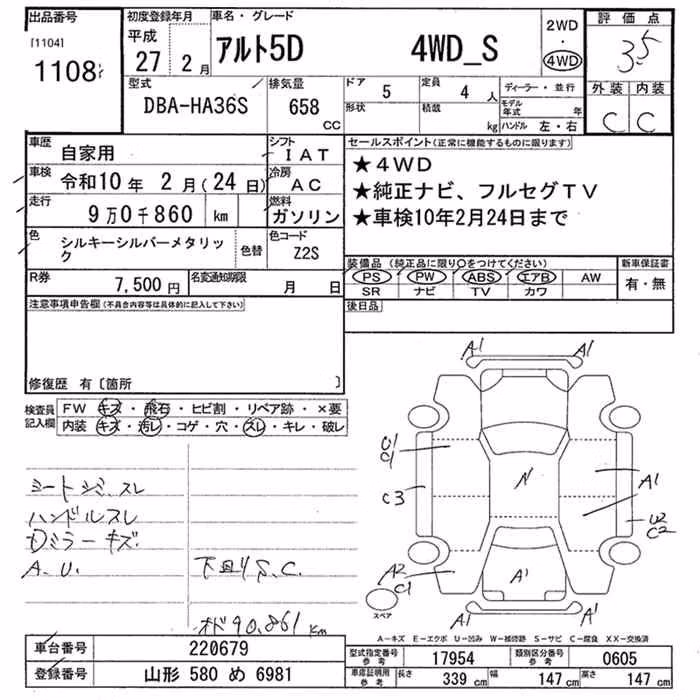 出品番号
[1104]
1108
初度登録年月
平成
27 2月
車名・グレード
アルト5D 4WD_S
2WD
・
4WD
評価点
3.5
外装 内装
C C
型式
DBA-HA36S
排気量
658
CC
ドア
5
定員
4人
形状
積載
kg
ディーラー・並行
モデル年式 年
ハンドル 左・右
車歴
自家用
シフト
IAT
車検
令和10年 2月(24日)
冷房
AC
走行
9万0千860 km
燃料
ガソリン
色
シルキーシルバーメタリック
色替
色コード
Z2S
R券
7,500円
名変通知期限
月 日
セールスポイント(正常に機能するものに限ります)
★4WD
★純正ナビ、フルセグTV
★車検10年2月24日まで
装備品(純正品に限り○をつけてください)
PS PW ABS エアB AW
SR ナビ TV カワ
新車保証書
有・無
後日品
注意事項申告欄(不具合内容等は具体的に記入して下さい)
修復歴 有〔箇所 〕
検査員記入欄
FW キズ・飛石・ヒビ割・リペア跡・×要
内装 キズ・汚レ・コゲ・穴・スレ・キレ・破レ
シートシミ、スレ
ハンドルスレ
Dミラーキズ
A.U.
下回りS.C.
オド90,861km
A1 A1
U1
C1
C3
A1
A1
U2
C2
A2
C1
A1
A1 A1
スペア
A−キズ E−エクボ U−凹み W−補修跡 S−サビ C−腐食 XX−交換済
車台番号
220679
登録番号
山形 580 め 6981
型式指定番号
参考
17954
類別区分番号
参考
0605
車庫証明用
参考
長さ
339 cm
幅
147 cm
高さ
147 cm